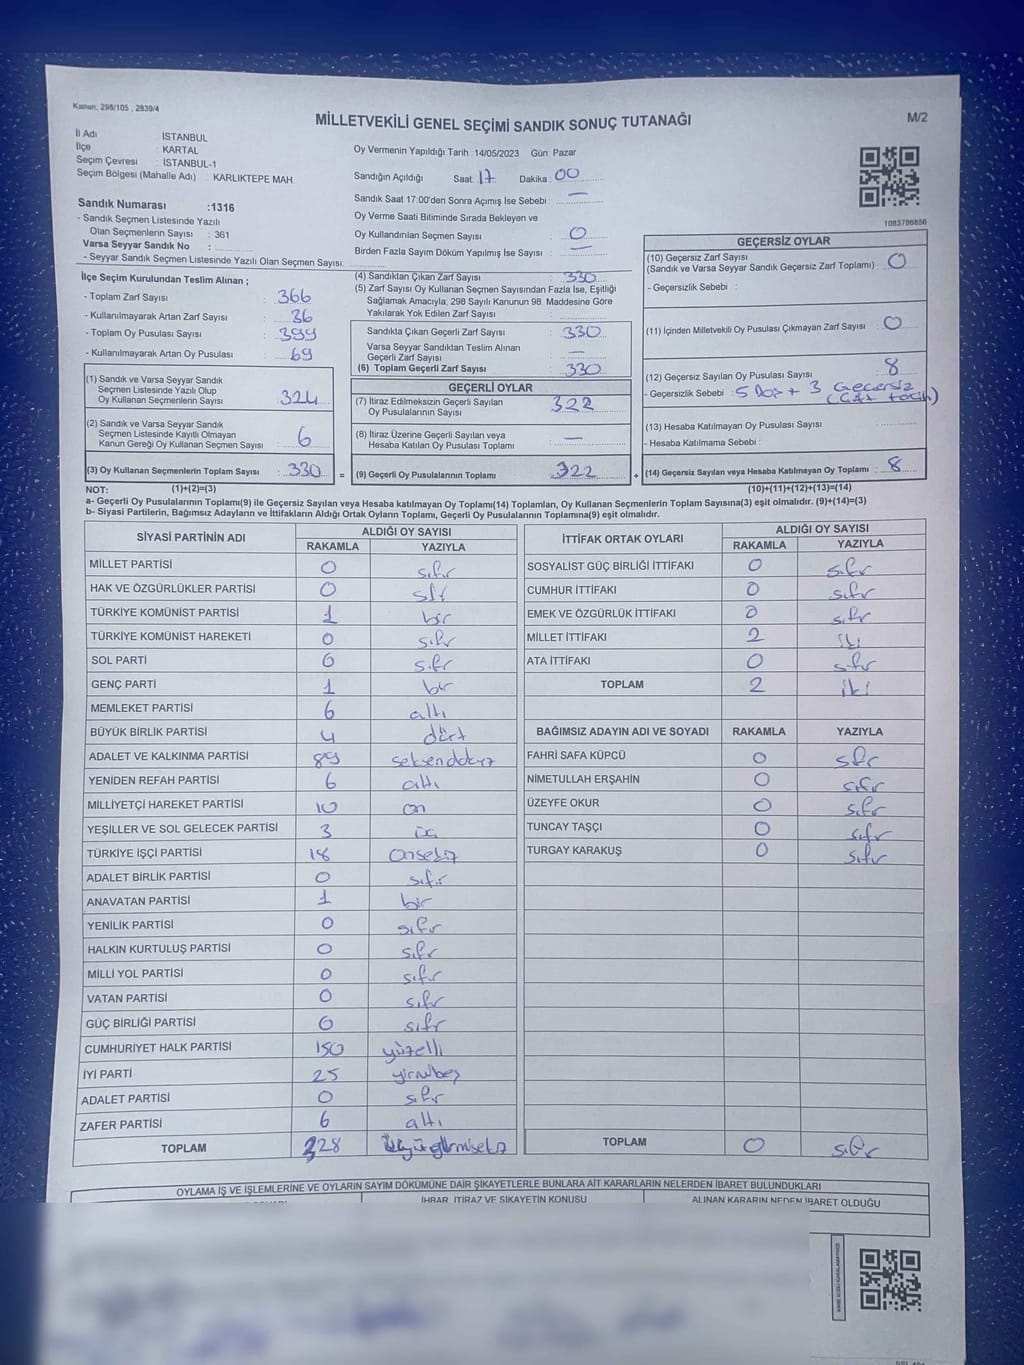 Kanun, 298/105 , 2839/4
MİLLETVEKİLİ GENEL SEÇİMİ SANDIK SONUÇ TUTANAĞI
M/2
İl Adı : İSTANBUL
İlçe : KARTAL
Seçim Çevresi : İSTANBUL-1
Seçim Bölgesi (Mahalle Adı) : KARLIKTEPE MAH.
Sandık Numarası :1316
- Sandık Seçmen Listesinde Yazılı
Olan Seçmenlerin Sayısı : 361
Varsa Seyyar Sandık No :
- Seyyar Sandık Seçmen Listesinde Yazılı Olan Seçmen Sayısı:
Oy Vermenin Yapıldığı Tarih :14/05/2023 Gün: Pazar
Sandığın Açıldığı Saat: 17 Dakika : 00
Sandık Saat 17:00'den Sonra Açımış İse Sebebi : —
Oy Verme Saati Bitiminde Sırada Bekleyen ve
Oy Kullandırılan Seçmen Sayısı : 0
Birden Fazla Sayım Döküm Yapılmış İse Sayısı : —
1083786850
İlçe Seçim Kurulundan Teslim Alınan ;
- Toplam Zarf Sayısı : 366
- Kullanılmayarak Artan Zarf Sayısı : 36
- Toplam Oy Pusulası Sayısı : 399
- Kullanılmayarak Artan Oy Pusulası : 69
(1) Sandık ve Varsa Seyyar Sandık
Seçmen Listesinde Yazılı Olup
Oy Kullanan Seçmenlerin Sayısı : 324
(2) Sandık ve Varsa Seyyar Sandık
Seçmen Listesinde Kayıtlı Olmayan
Kanun Gereği Oy Kullanan Seçmen Sayısı : 6
(3) Oy Kullanan Seçmenlerin Toplam Sayısı : 330
(4) Sandıktan Çıkan Zarf Sayısı : 330
(5) Zarf Sayısı Oy Kullanan Seçmen Sayısından Fazla İse, Eşitliği
Sağlamak Amacıyla, 298 Sayılı Kanunun 98. Maddesine Göre
Yakılarak Yok Edilen Zarf Sayısı :
Sandıkta Çıkan Geçerli Zarf Sayısı : 330
Varsa Seyyar Sandıktan Teslim Alınan
Geçerli Zarf Sayısı : —
(6) Toplam Geçerli Zarf Sayısı : 330
GEÇERLİ OYLAR
(7) İtiraz Edilmeksizin Geçerli Sayılan
Oy Pusulalarının Sayısı : 322
(8) İtiraz Üzerine Geçerli Sayılan veya
Hesaba Katılan Oy Pusulası Toplamı : —
= (9) Geçerli Oy Pusulalarının Toplamı : 322
GEÇERSİZ OYLAR
(10) Geçersiz Zarf Sayısı
(Sandık ve Varsa Seyyar Sandık Geçersiz Zarf Toplamı) : 0
- Geçersizlik Sebebi :
(11) İçinden Milletvekili Oy Pusulası Çıkmayan Zarf Sayısı : 0
(12) Geçersiz Sayılan Oy Pusulası Sayısı : 8
- Geçersizlik Sebebi : 5 Boş + 3 Geçersiz
(13) Hesaba Katılmayan Oy Pusulası Sayısı :
- Hesaba Katılmama Sebebi :
+ (14) Geçersiz Sayılan veya Hesaba Katılmayan Oy Toplamı : 8
NOT: (1)+(2)=(3)
(10)+(11)+(12)+(13)=(14)
a- Geçerli Oy Pusulalarının Toplamı(9) ile Geçersiz Sayılan veya Hesaba katılmayan Oy Toplamı(14) Toplamları, Oy Kullanan Seçmenlerin Toplam Sayısına(3) eşit olmalıdır. (9)+(14)=(3)
b- Siyasi Partilerin, Bağımsız Adayların ve İttifakların Aldığı Ortak Oyların Toplamı, Geçerli Oy Pusulalarının Toplamına(9) eşit olmalıdır.
SİYASİ PARTİNİN ADI ALDIĞI OY SAYISI
RAKAMLA YAZIYLA
MİLLET PARTİSİ 0 sıfır
HAK VE ÖZGÜRLÜKLER PARTİSİ 0 sıfır
TÜRKİYE KOMÜNİST PARTİSİ 1 bir
TÜRKİYE KOMÜNİST HAREKETİ 0 sıfır
SOL PARTİ 0 sıfır
GENÇ PARTİ 1 bir
MEMLEKET PARTİSİ 6 altı
BÜYÜK BİRLİK PARTİSİ 4 dört
ADALET VE KALKINMA PARTİSİ 89 seksendokuz
YENİDEN REFAH PARTİSİ 6 altı
MİLLİYETÇİ HAREKET PARTİSİ 10 on
YEŞİLLER VE SOL GELECEK PARTİSİ 3 üç
TÜRKİYE İŞÇİ PARTİSİ 18 onsekiz
ADALET BİRLİK PARTİSİ 0 sıfır
ANAVATAN PARTİSİ 1 bir
YENİLİK PARTİSİ 0 sıfır
HALKIN KURTULUŞ PARTİSİ 0 sıfır
MİLLİ YOL PARTİSİ 0 sıfır
VATAN PARTİSİ 0 sıfır
GÜÇ BİRLİĞİ PARTİSİ 0 sıfır
CUMHURİYET HALK PARTİSİ 150 yüzelli
İYİ PARTİ 25 yirmibeş
ADALET PARTİSİ 0 sıfır
ZAFER PARTİSİ 6 altı
TOPLAM 328
İTTİFAK ORTAK OYLARI ALDIĞI OY SAYISI
RAKAMLA YAZIYLA
SOSYALİST GÜÇ BİRLİĞİ İTTİFAKI 0 sıfır
CUMHUR İTTİFAKI 0 sıfır
EMEK VE ÖZGÜRLÜK İTTİFAKI 0 sıfır
MİLLET İTTİFAKI 2 iki
ATA İTTİFAKI 0 sıfır
TOPLAM 2 iki
BAĞIMSIZ ADAYIN ADI VE SOYADI RAKAMLA YAZIYLA
FAHRİ SAFA KÜPCÜ 0 sıfır
NİMETULLAH ERŞAHİN 0 sıfır
ÜZEYFE OKUR 0 sıfır
TUNCAY TAŞÇI 0 sıfır
TURGAY KARAKUŞ 0 sıfır
TOPLAM 0 sıfır
OYLAMA İŞ VE İŞLEMLERİNE VE OYLARIN SAYIM DÖKÜMÜNE DAİR ŞİKAYETLERLE BUNLARA AİT KARARLARIN NELERDEN İBARET BULUNDUKLARI
İHBAR, İTİRAZ VE ŞİKAYETİN KONUSU
ALINAN KARARIN NEDEN İBARET OLDUĞU